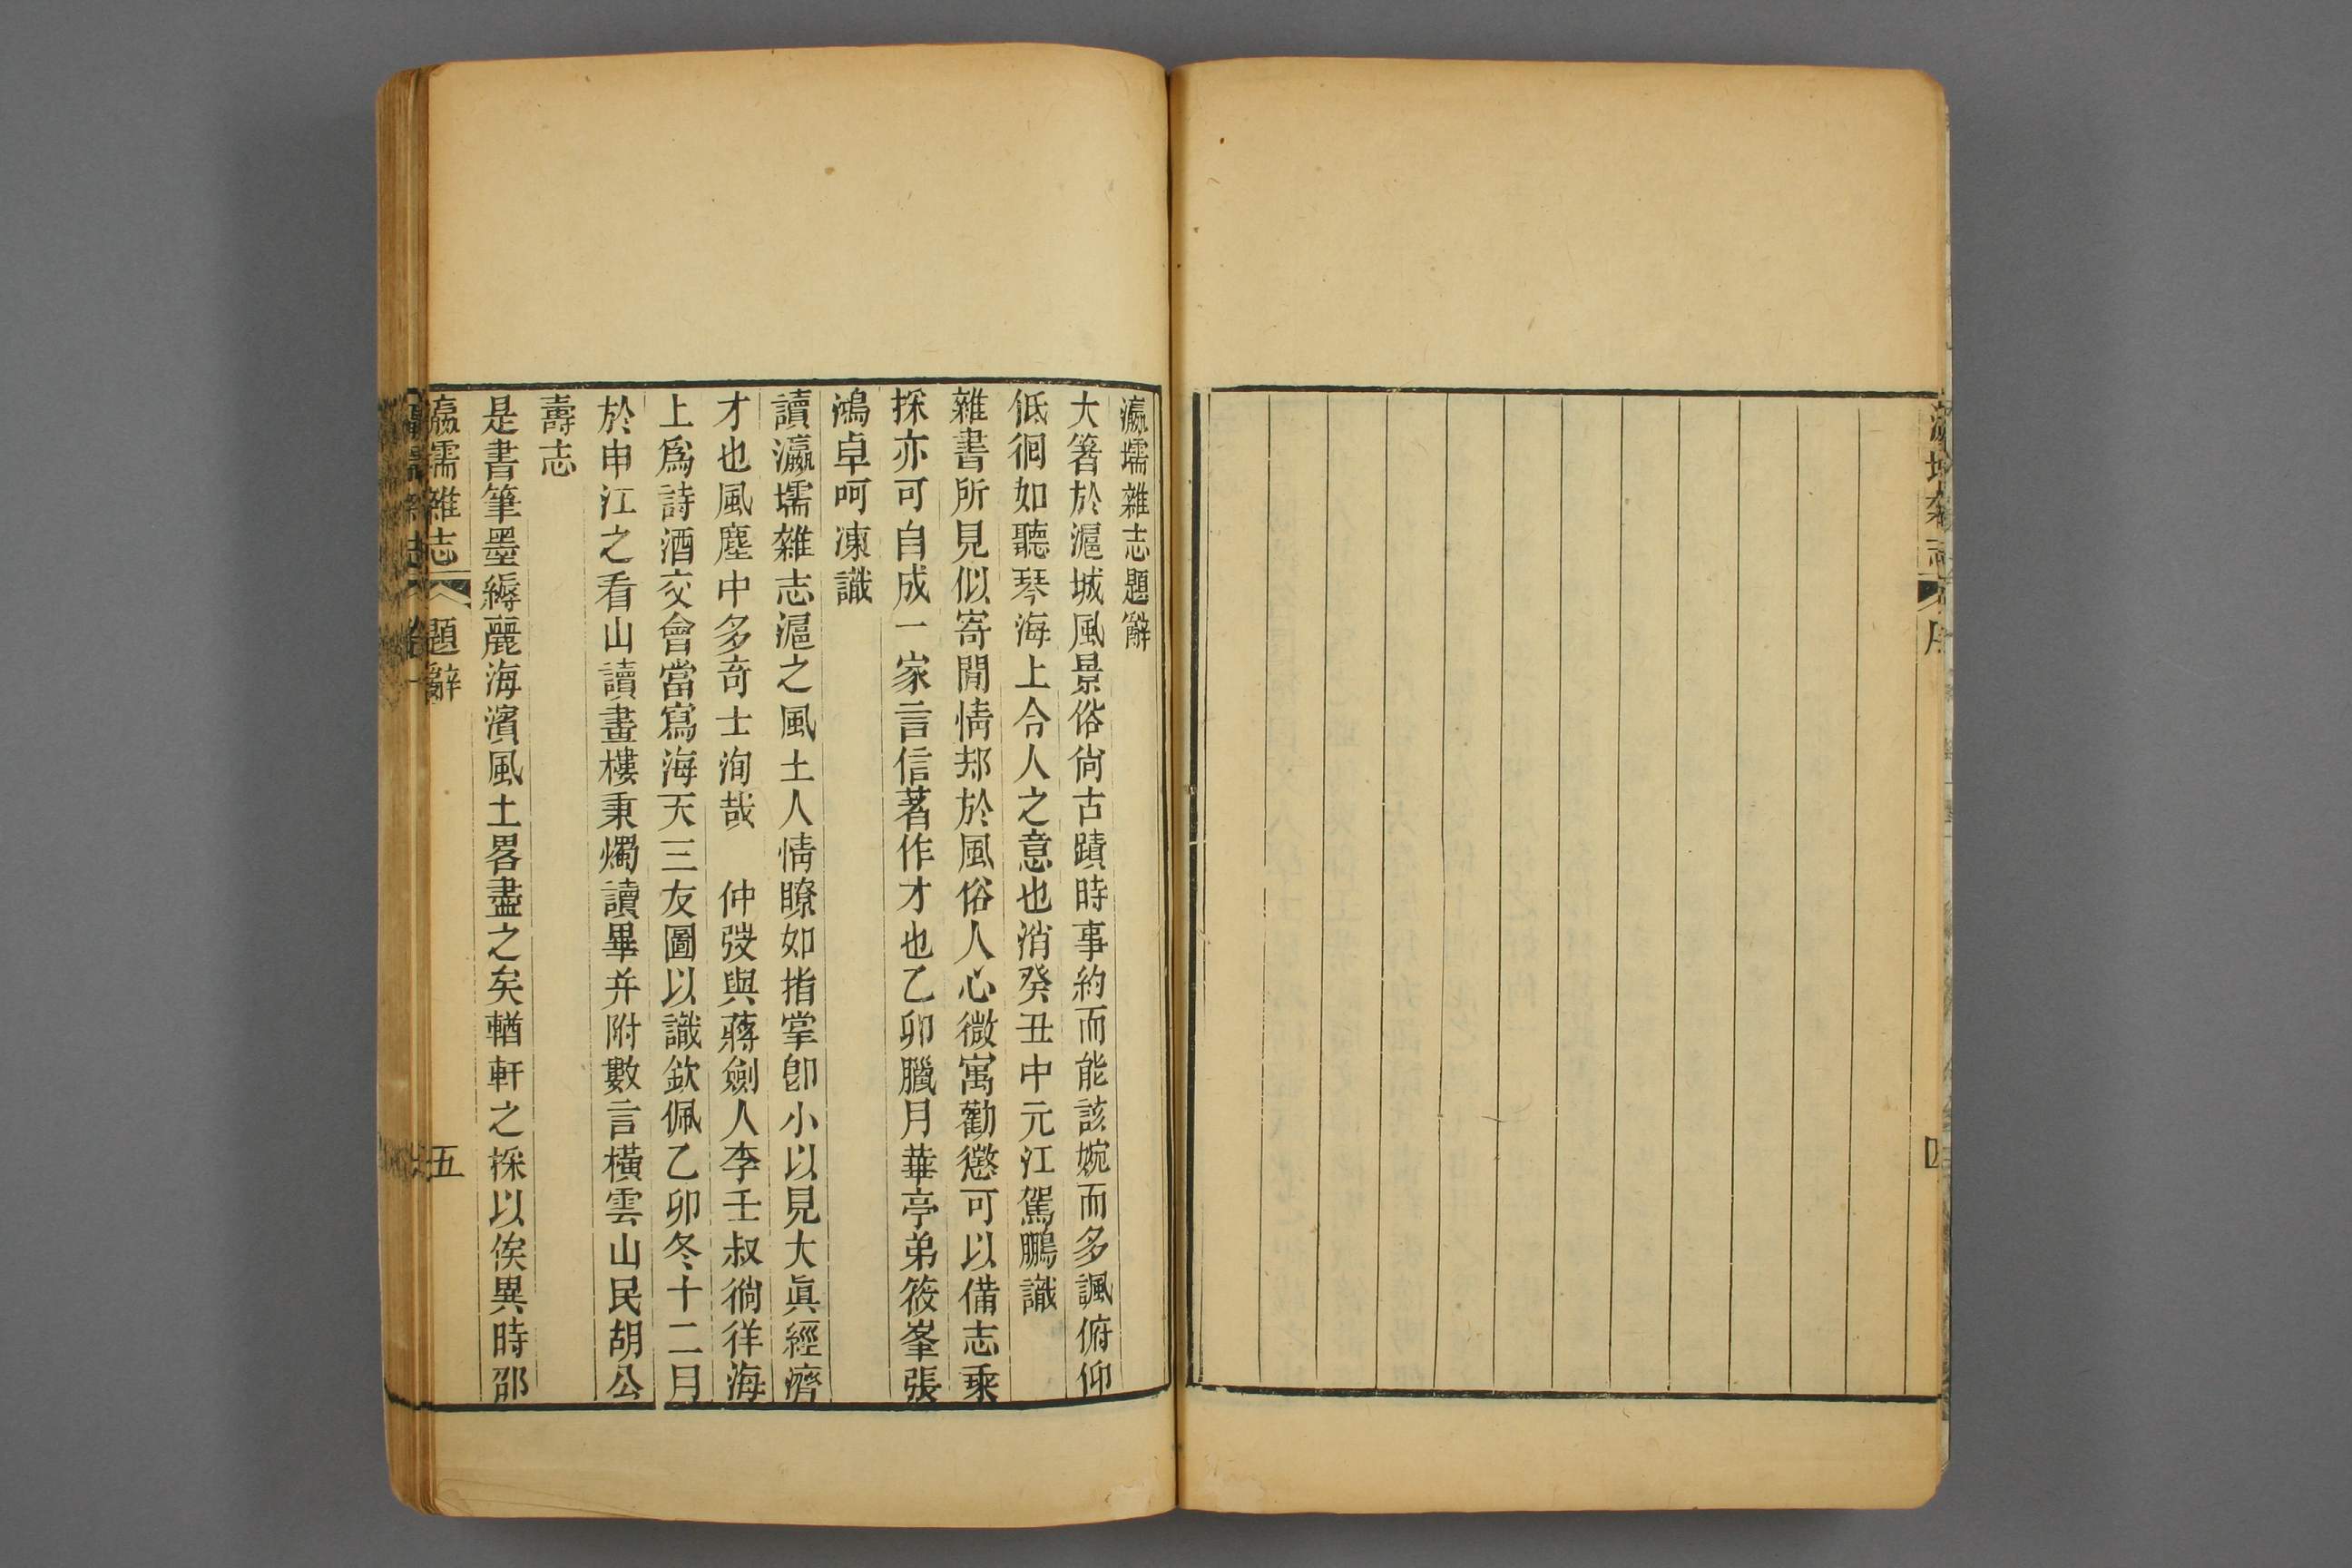 瀛壖雜志
序
瀛壖雜志題辭
大箸於滬城風景俗尙古蹟時事約而能該婉而多諷俯仰
低徊如聽琴海上令人之意也消癸丑中元江駕鵬識
雜書所見似寄閒情邦於風俗人心微寓勸懲可以備志乘
採亦可自成一家言信著作才也乙卯臘月華亭弟筱峯張
鴻卓呵凍識
讀瀛壖雜志滬之風土人情瞭如指掌卽小以見大眞經濟
才也風塵中多奇士洵哉　仲弢與蔣劍人李壬叔徜徉海
上爲詩酒交會當寫海天三友圖以識欽佩乙卯冬十二月
於申江之看山讀畫樓秉燭讀畢并附數言橫雲山民胡公
壽志
是書筆墨縟麗海濱風土畧盡之矣輶軒之採以俟異時邵
瀛壖雜志
題辭
五